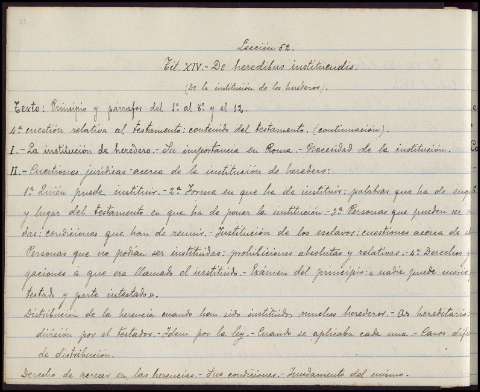 Lección 52.
Tít. XIV.- De heredibus instituendis.
(De la institución de los herederos).
Texto: Principio y párrafos del 1º al 8º y el 12.
4ª cuestión relativa al testamento: contenido del testamento. (continuación).
I.- La institución de heredero.- Su importancia en Roma.- Necesidad de la institución.
II.- Cuestiones jurídicas acerca de la institución de heredero:
1ª Quién puede instituir.- 2ª Forma en que ha de instituir: palabras que ha de
y lugar del testamento en que ha de poner la institución.- 3ª Personas que pueden
das: condiciones que han de reunir.- Institución de los esclavos: cuestiones acerca de
Personas que no podían ser instituidas: prohibiciones absolutas y relativas.- 4ª Derechos y
gaciones a que era llamado el instituido.- Exámen del principio: "nadie puede morir
testado y parte intestado".
Distribución de la herencia cuando han sido instituidos muchos herederos.- As hereditario:
división por el testador.- Idem por la ley.- Cuando se aplicaba cada una.- Casos
de distribución.
Derecho de acrecer en las herencias.- Sus condiciones.- Fundamento del mismo.